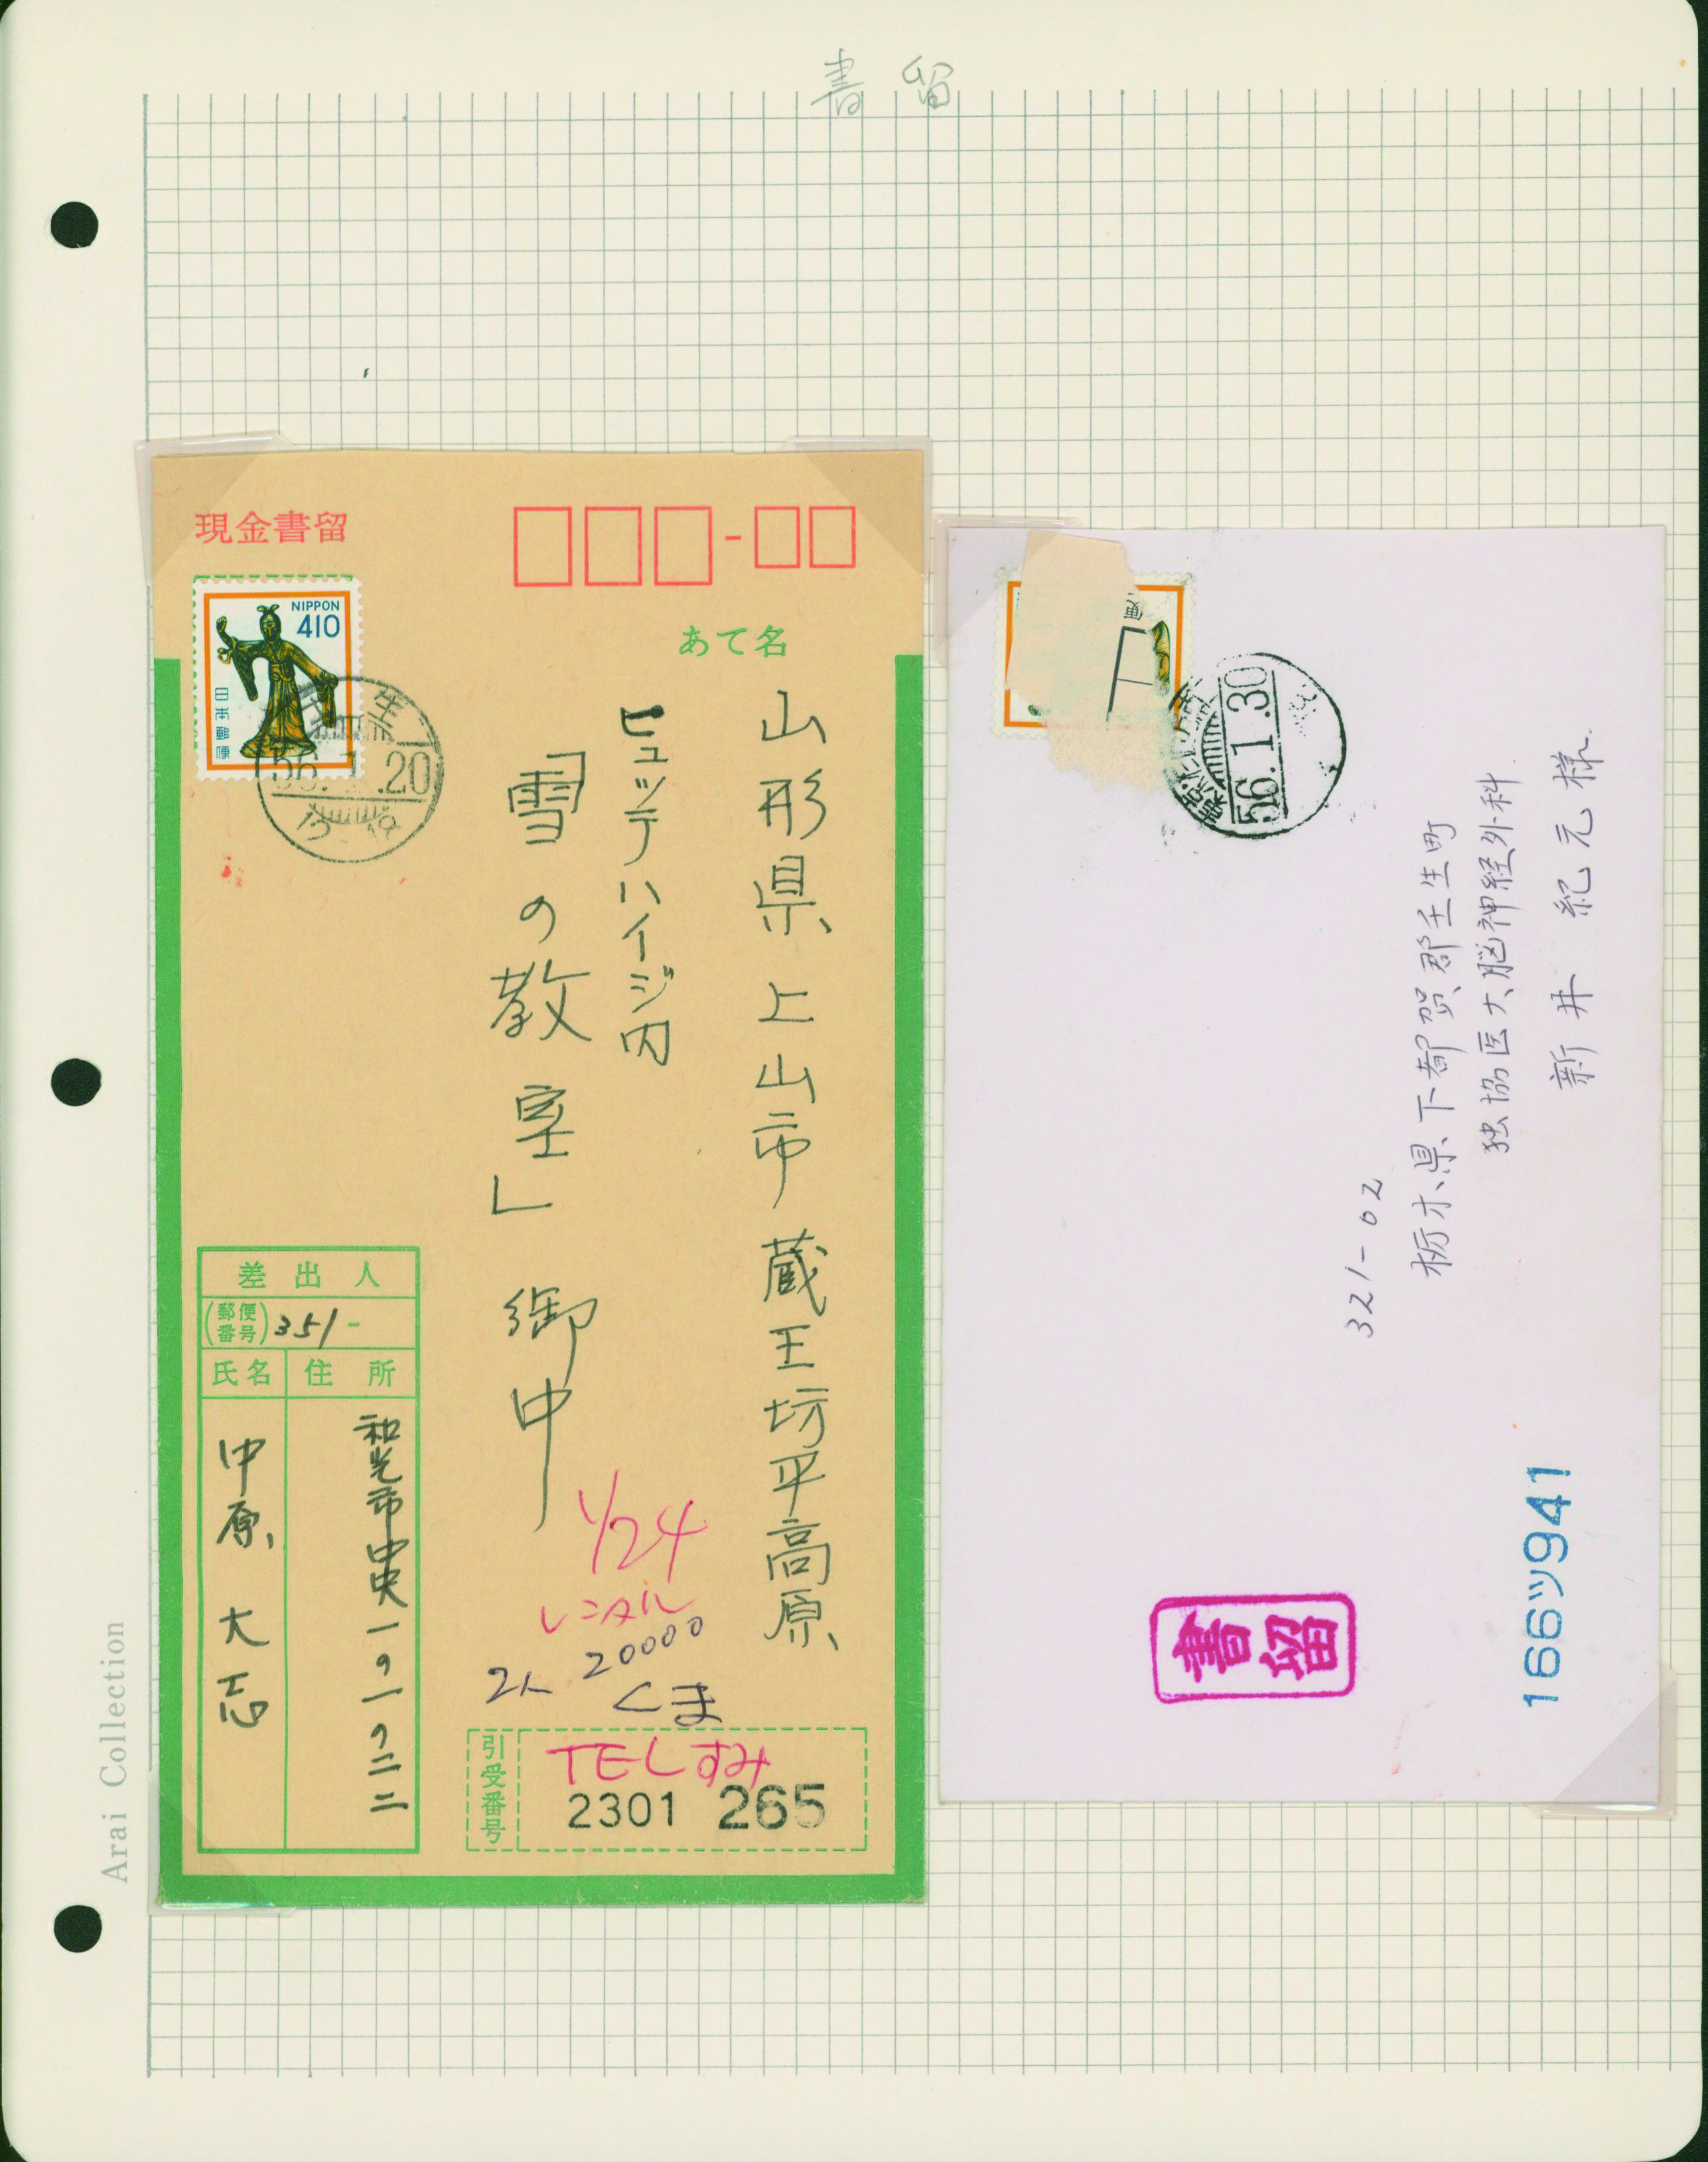 書留
現金書留
NIPPON
410
日本郵便
56.1.20
あて名
山形県上山市蔵王坊平高原
ヒュッテハイジ内
「雪の教室」御中
1/24
レンタル
20000
2人
くま
差出人
(郵便番号) 351-
氏名
住所
和光市中央一の一の二二
中原大志
引受番号
TELすみ
2301 265
便
56.1.30
321-02
栃木県下都賀郡壬生町
独協医大脳神経外科
新井紀元様
書留
166ツ941
Arai Collection